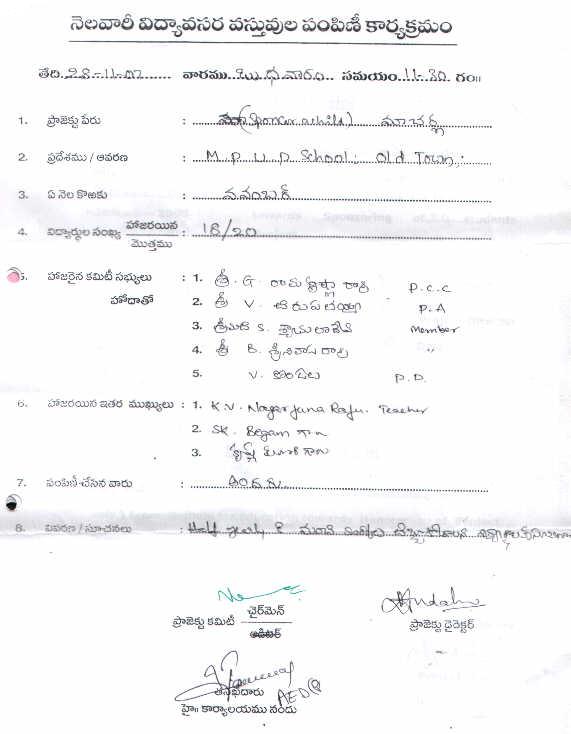 నెలవారీ విద్యావసర వస్తువుల పంపిణీ కార్యక్రమం
తేది 28-11-07 వారము బుధవారం సమయం 11-30 గం॥
1. ప్రాజెక్టు పేరు : (Sponcer a child)
2. ప్రదేశము / ఆవరణ : M.P.U.P School, Old Town,
3. ఏ నెల కొఱకు : నవంబర్
4. విద్యార్థుల సంఖ్య హాజరయిన / మొత్తము : 18/20
5. హాజరైన కమిటీ సభ్యులు : 1. శ్రీ. G. రామకృష్ణా రావు P.C.C
హోదాతో 2. శ్రీ V. P.A
3. శ్రీమతి S. శ్యామలాదేవి Member
4. శ్రీ B. శ్రీనివాస రావు "
5. V. P.D.
6. హాజరయిన ఇతర ముఖ్యులు : 1. K.V. Nagarjuna Raju. Teacher
2. SK. Begam గారు
3. గారు
7. పంపిణీ చేసిన వారు : అందరు
8. వివరణ / సూచనలు : Half yearly
ప్రాజెక్టు కమిటీ ఛైర్‌మెన్ / ఆడిటర్
ప్రాజెక్టు డైరెక్టర్
తనిఖీదారు
హై॥ కార్యాలయము నందు